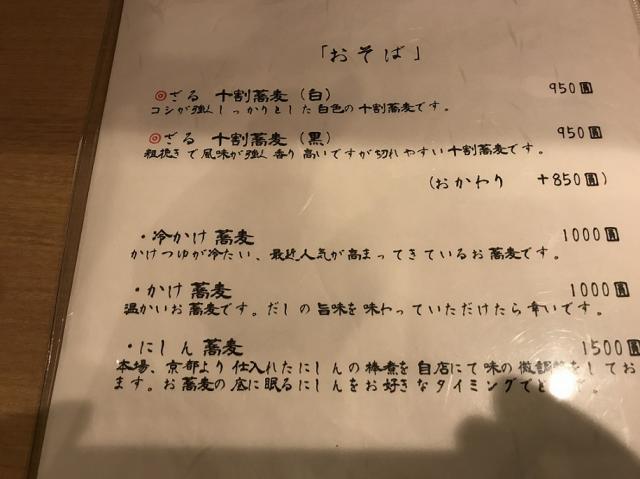 「おそば」
◎ざる 十割蕎麦(白) 950圓
コシが強くしっかりとした白色の十割蕎麦です。
◎ざる 十割蕎麦(黒) 950圓
粗挽きで風味が強く香り高いですが切れやすい十割蕎麦です。
(おかわり +850圓)
・冷かけ蕎麦 1000圓
かけつゆが冷たい、最近人気が高まってきているお蕎麦です。
・かけ蕎麦 1000圓
温かいお蕎麦です。だしの旨味を味わっていただけたら幸いです。
・にしん蕎麦 1500圓
本場、京都より仕入れたにしんの棒煮を自店にて味の微調整をしてお
ます。お蕎麦の底に眠るにしんをお好きなタイミングで